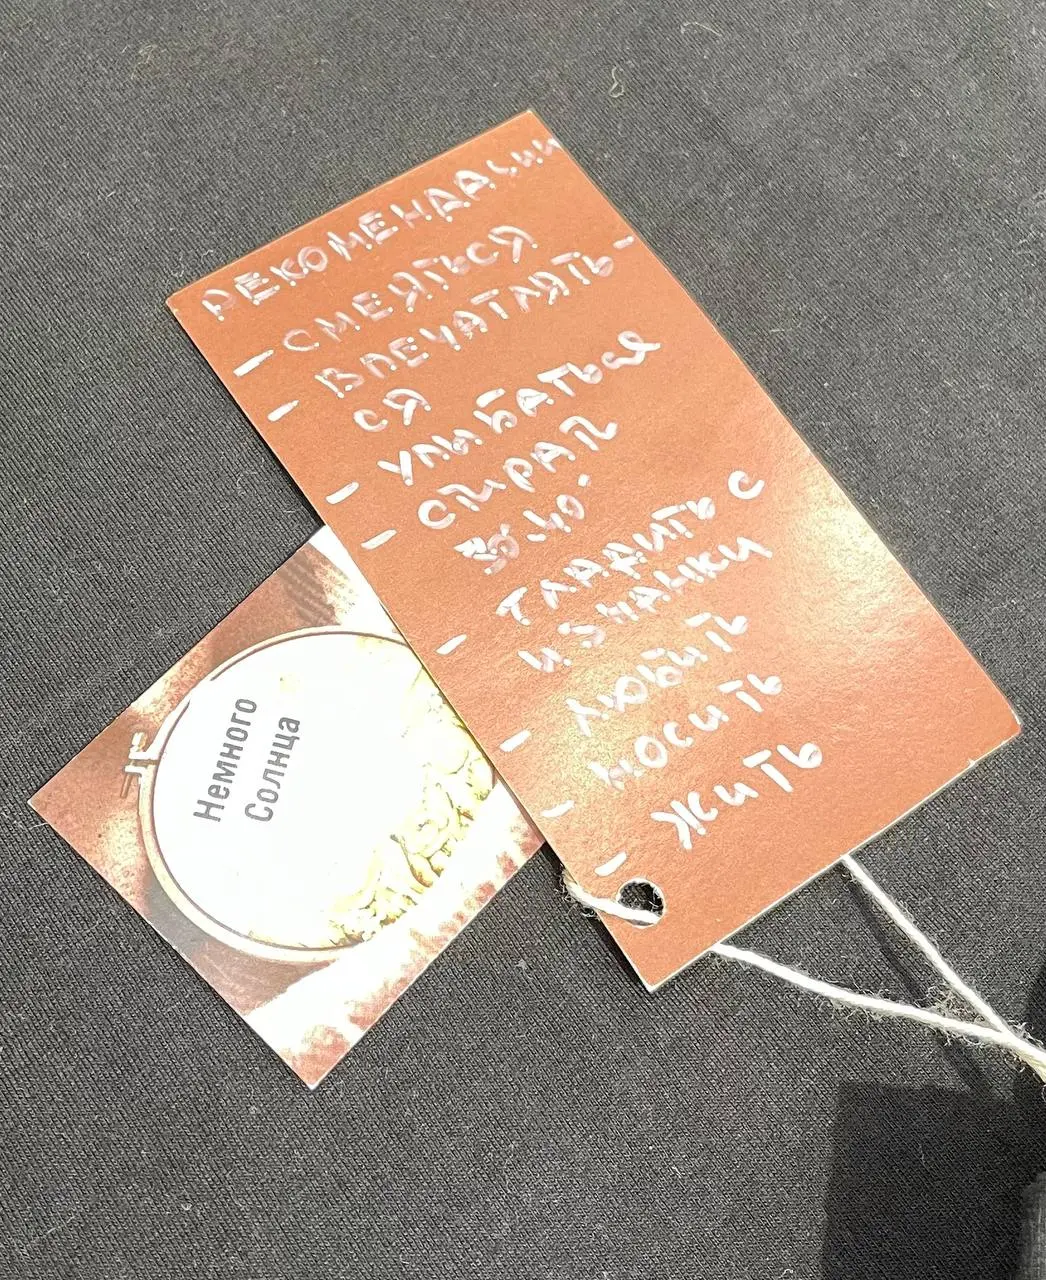 РЕКОМЕНДАЦИИ
- СМЕЯТЬСЯ
- ВПЕЧАТЛЯТЬ-
СЯ
- УЛЫБАТЬСЯ
- СТИРАТЬ
30°-40°
- ГЛАДИТЬ С
ИЗНАНКИ
- ЛЮБИТЬ
- НОСИТЬ
- ЖИТЬ
Немного
Солнца